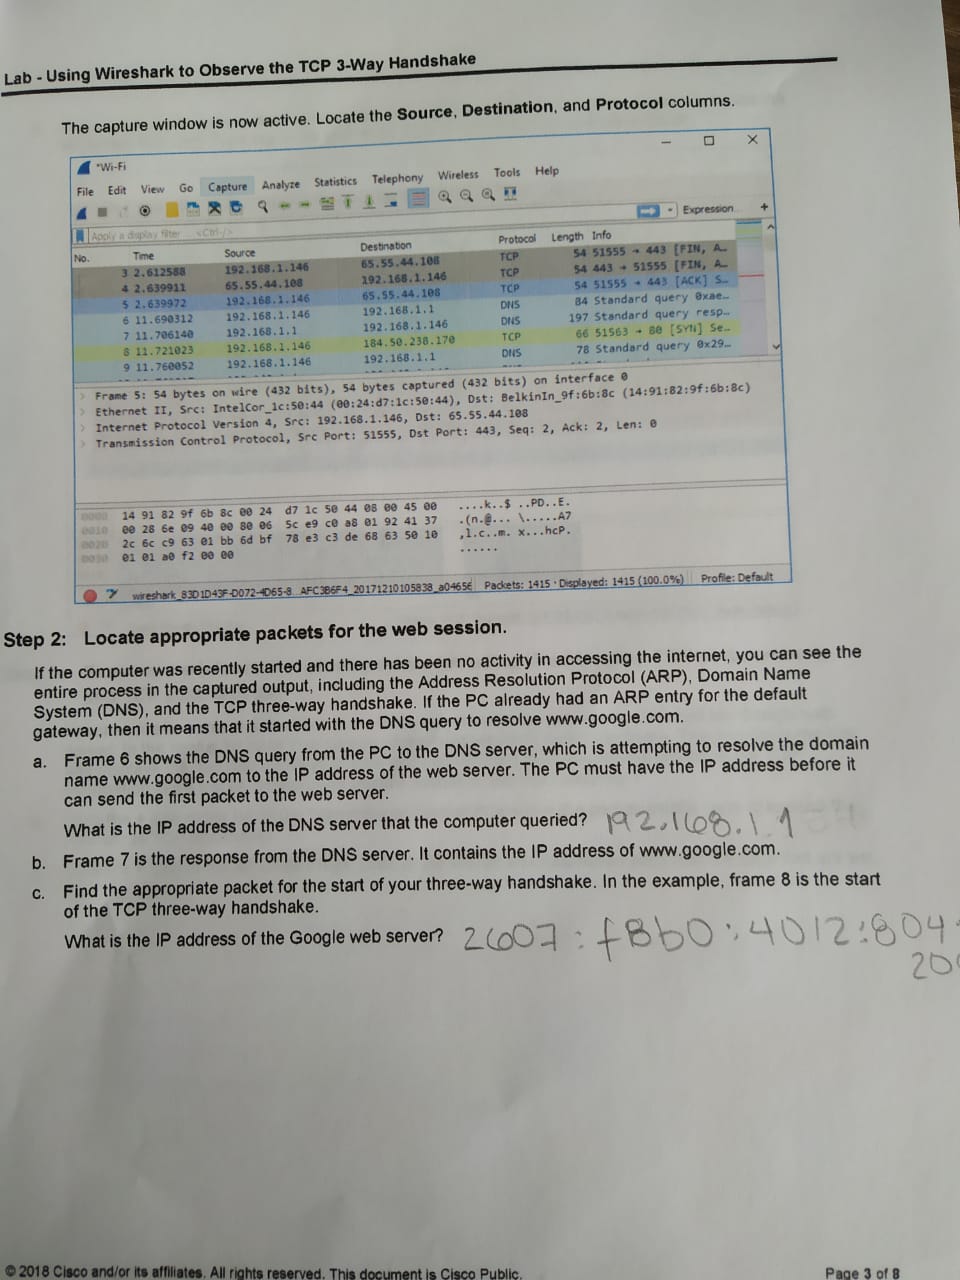 Lab - Using Wireshark to Observe the TCP 3-Way Handshake
The capture window is now active. Locate the Source, Destination, and Protocol columns.
*Wi-Fi
File Edit View Go Capture Analyze Statistics Telephony Wireless Tools Help
Apply a display filter ... <Ctrl-/> Expression... +
No. Time Source Destination Protocol Length Info
3 2.612588 192.168.1.146 65.55.44.108 TCP 54 51555 → 443 [FIN, A…
4 2.639911 65.55.44.108 192.168.1.146 TCP 54 443 → 51555 [FIN, A…
5 2.639972 192.168.1.146 65.55.44.108 TCP 54 51555 → 443 [ACK] S…
6 11.690312 192.168.1.146 192.168.1.1 DNS 84 Standard query 0xae…
7 11.706140 192.168.1.1 192.168.1.146 DNS 197 Standard query resp…
8 11.721023 192.168.1.146 184.50.238.170 TCP 66 51563 → 80 [SYN] Se…
9 11.760052 192.168.1.146 192.168.1.1 DNS 78 Standard query 0x29…
Frame 5: 54 bytes on wire (432 bits), 54 bytes captured (432 bits) on interface 0
Ethernet II, Src: IntelCor_1c:50:44 (00:24:d7:1c:50:44), Dst: BelkinIn_9f:6b:8c (14:91:82:9f:6b:8c)
Internet Protocol Version 4, Src: 192.168.1.146, Dst: 65.55.44.108
Transmission Control Protocol, Src Port: 51555, Dst Port: 443, Seq: 2, Ack: 2, Len: 0
0000 14 91 82 9f 6b 8c 00 24 d7 1c 50 44 08 00 45 00 ....k..$ ..PD..E.
0010 00 28 6e 09 40 00 80 06 5c e9 c0 a8 01 92 41 37 .(n.@... \.....A7
0020 2c 6c c9 63 01 bb 6d bf 78 e3 c3 de 68 63 50 10 ,l.c..m. x...hcP.
0030 01 01 a0 f2 00 00 ......
Packets: 1415 · Displayed: 1415 (100.0%) Profile: Default
Step 2: Locate appropriate packets for the web session.
If the computer was recently started and there has been no activity in accessing the internet, you can see the
entire process in the captured output, including the Address Resolution Protocol (ARP), Domain Name
System (DNS), and the TCP three-way handshake. If the PC already had an ARP entry for the default
gateway, then it means that it started with the DNS query to resolve www.google.com.
a. Frame 6 shows the DNS query from the PC to the DNS server, which is attempting to resolve the domain
name www.google.com to the IP address of the web server. The PC must have the IP address before it
can send the first packet to the web server.
What is the IP address of the DNS server that the computer queried? 192.168.1.1
b. Frame 7 is the response from the DNS server. It contains the IP address of www.google.com.
c. Find the appropriate packet for the start of your three-way handshake. In the example, frame 8 is the start
of the TCP three-way handshake.
What is the IP address of the Google web server? 2607:f8b0:4012:804
20
© 2018 Cisco and/or its affiliates. All rights reserved. This document is Cisco Public. Page 3 of 8